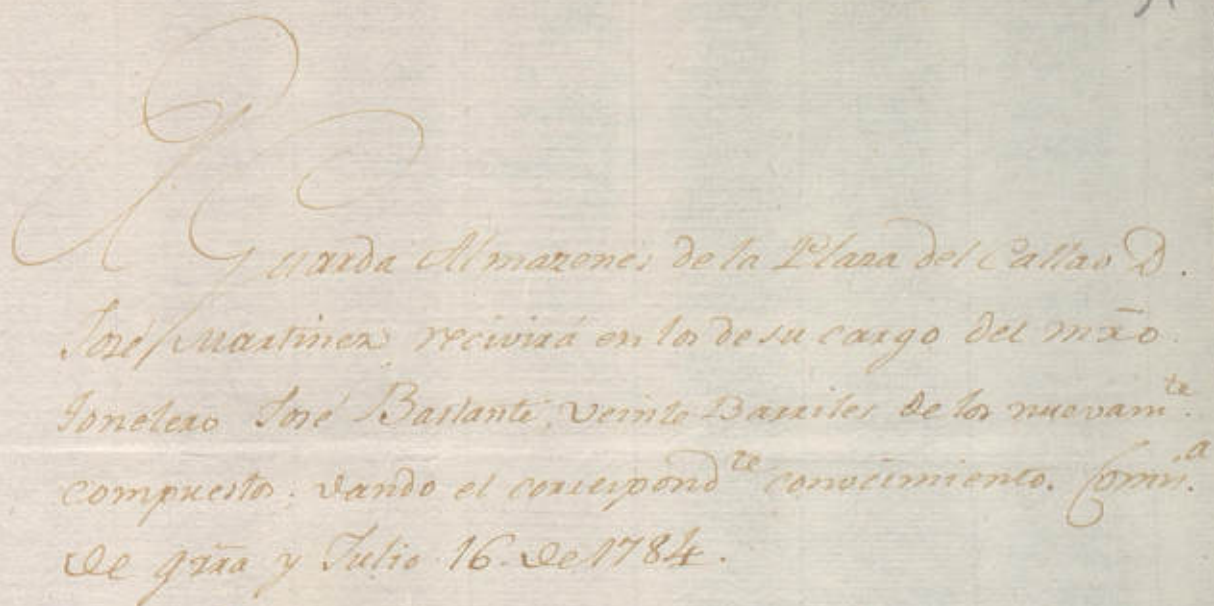 El Guarda Almazenes de la Plaza del Callao D.
José Martinez recivirá en los de su cargo del mr̃o
Tonelero José Bastante, veinte Barriles de los nuevam.te
compuestos, dando el correspond.te conocimiento. Comis.a
de grr̃a y Julio 16 de 1784.